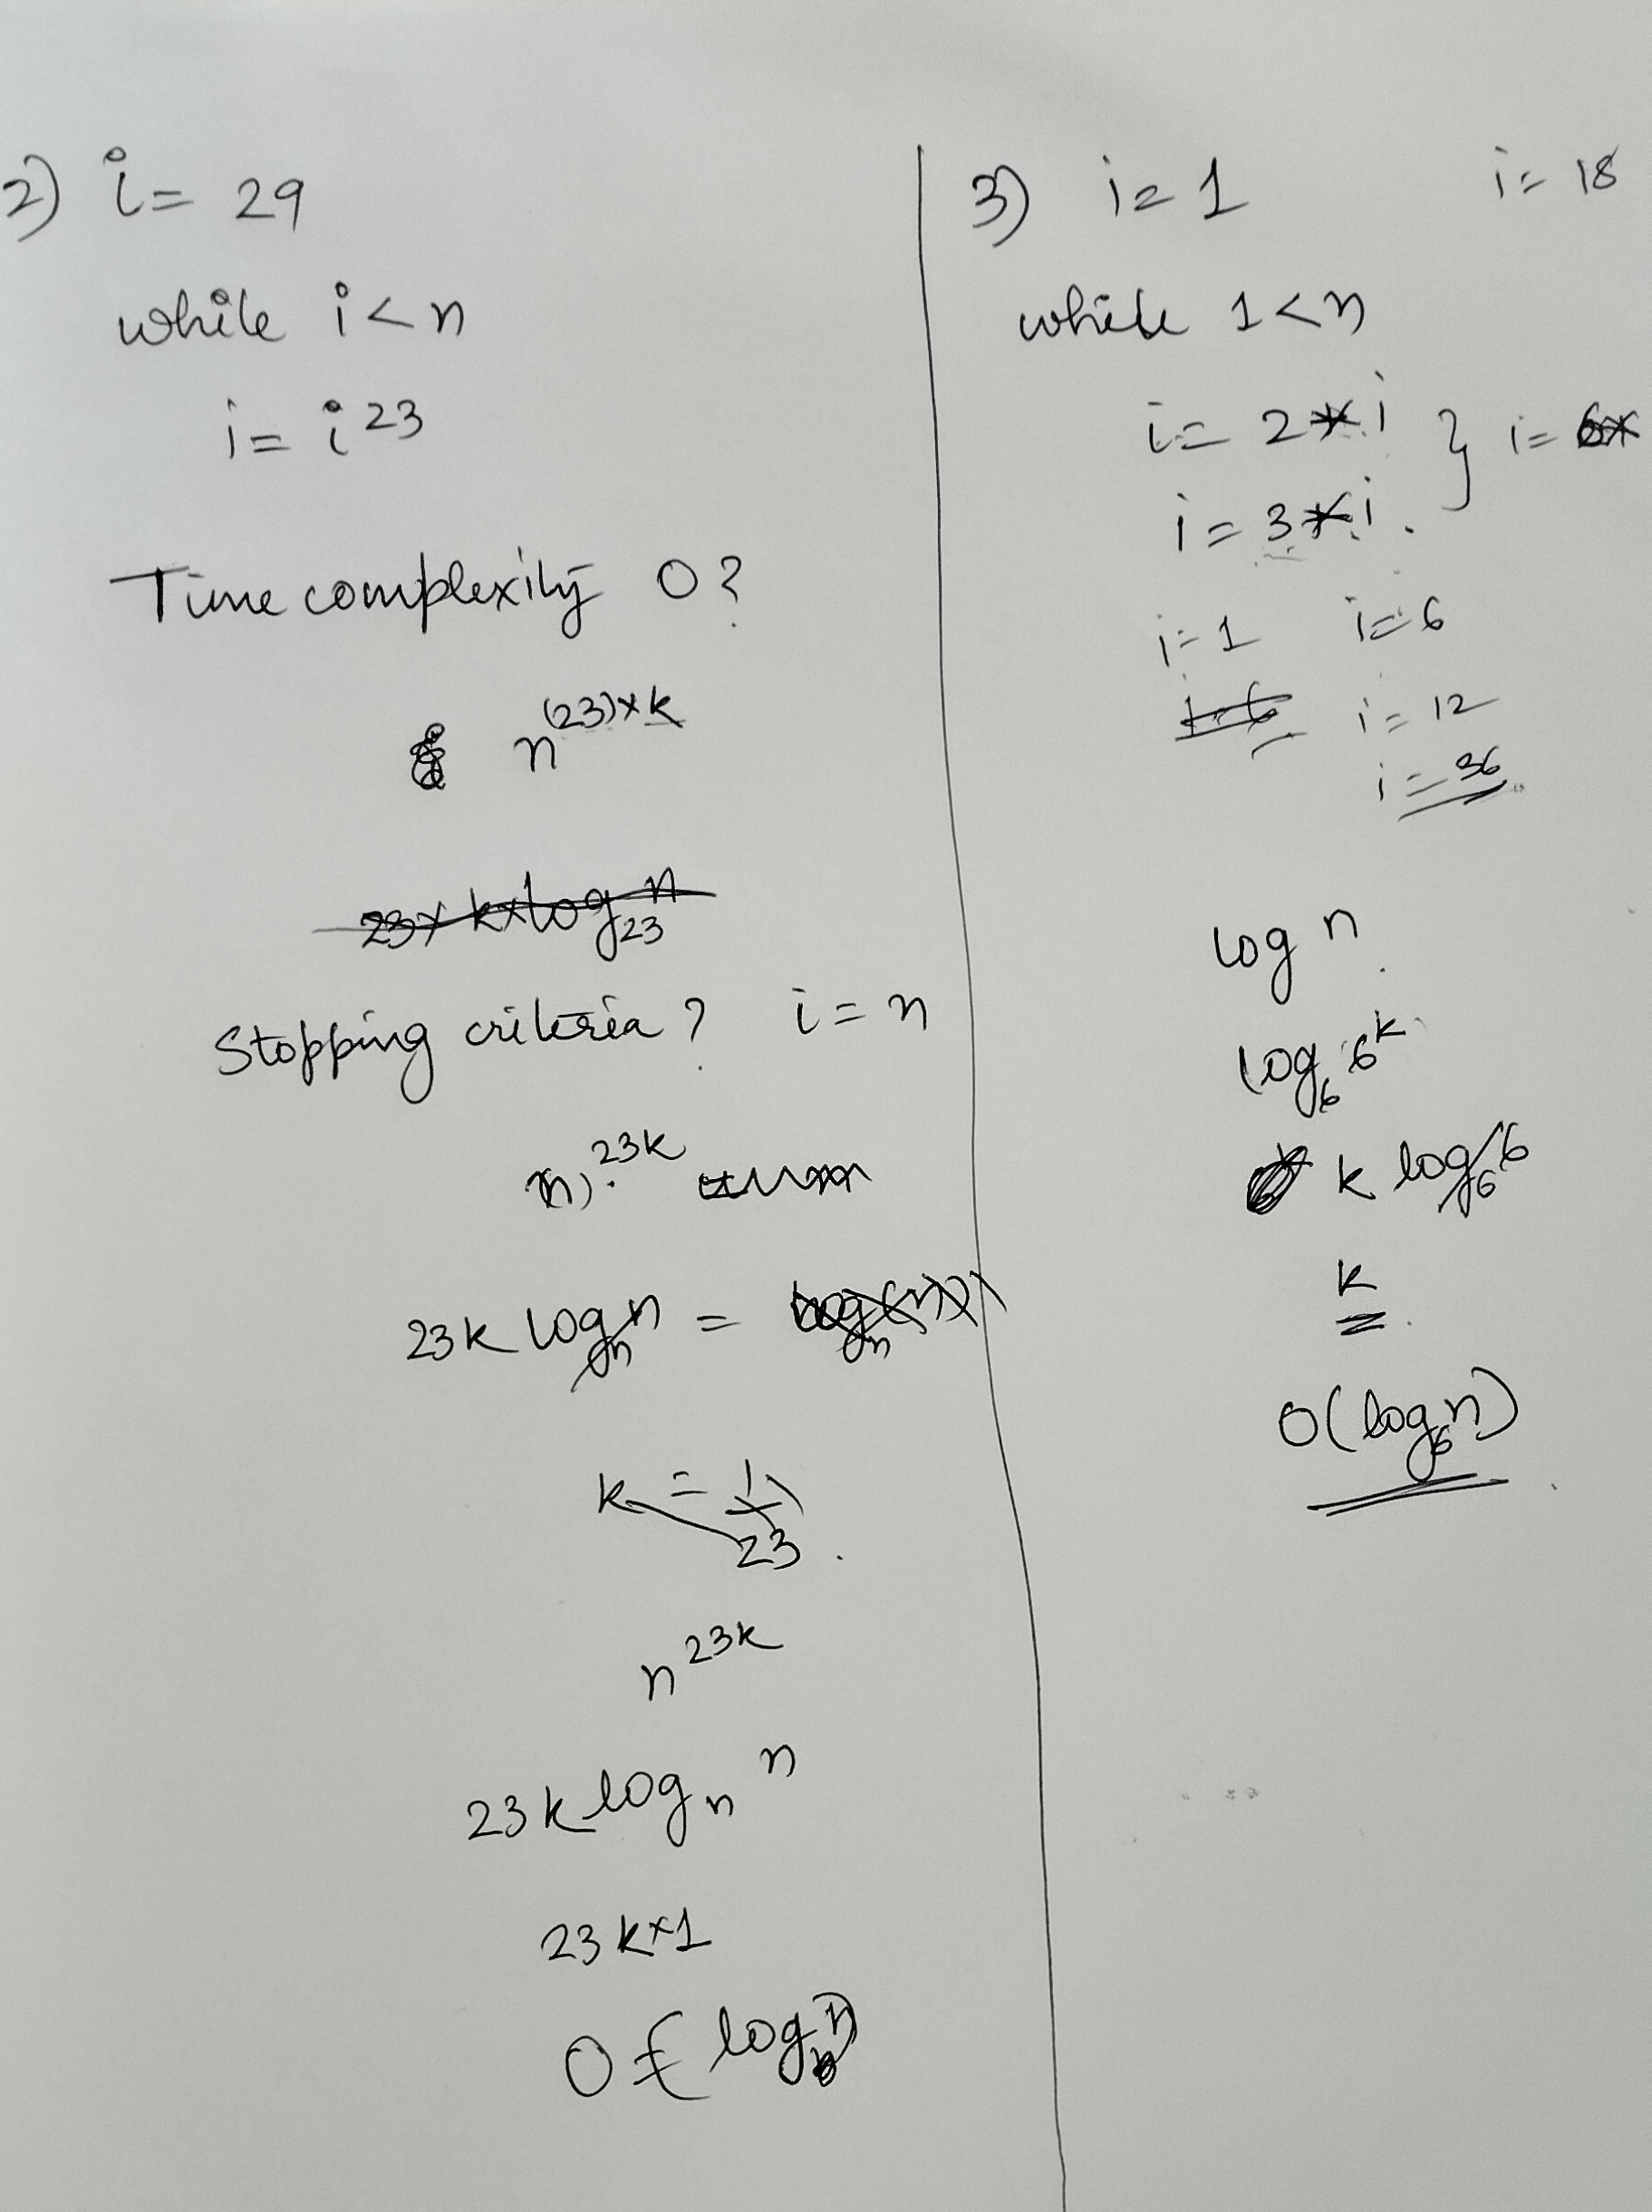 2) i = 29
while i < n
i = i^23
Time complexity O?
n^(23)×k
23× k×log_23 n
Stopping criteria? i = n
(n)^23k
23k log_n n = log_n(n)
k = 1/23
n^23k
23k log_n n
23 k×1
O( log n)
3) i = 1 i = 18
while 1 < n
i = 2*i } i = 6*
i = 3*i.
i = 1 i = 6
i = 6 i = 12
i = 36
log n
log_6 6^k
k log_6 6
k
O(log_6 n)